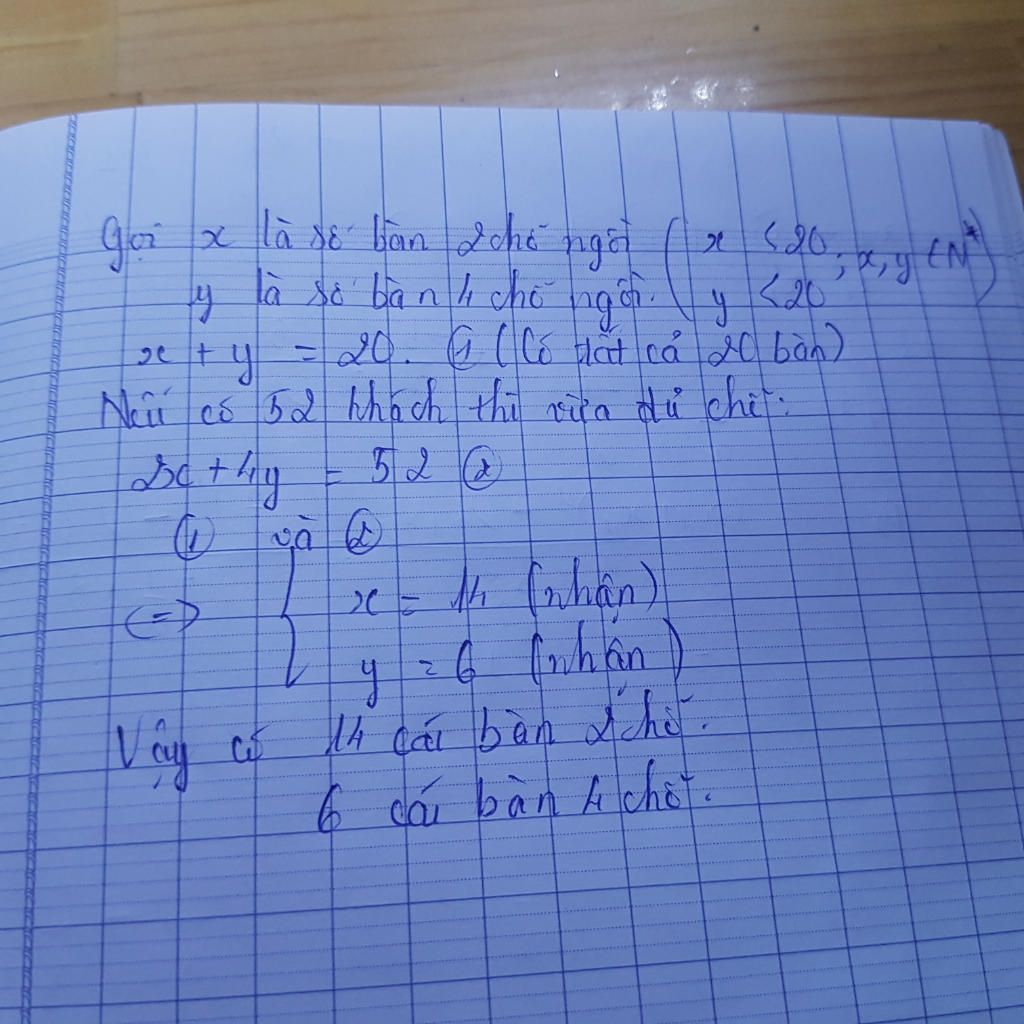 Gọi x là số bàn 2 chỗ ngồi ( x < 20 ; x, y ∈ N*)
y là số bàn 4 chỗ ngồi. ( y < 20
x + y = 20. ① (Có tất cả 20 bàn)
Nếu có 52 khách thì vừa đủ chỗ:
2x + 4y = 52 ②
① và ②
<=> { x = 14 (nhận)
y = 6 (nhận)
Vậy có 14 cái bàn 2 chỗ.
6 cái bàn 4 chỗ.